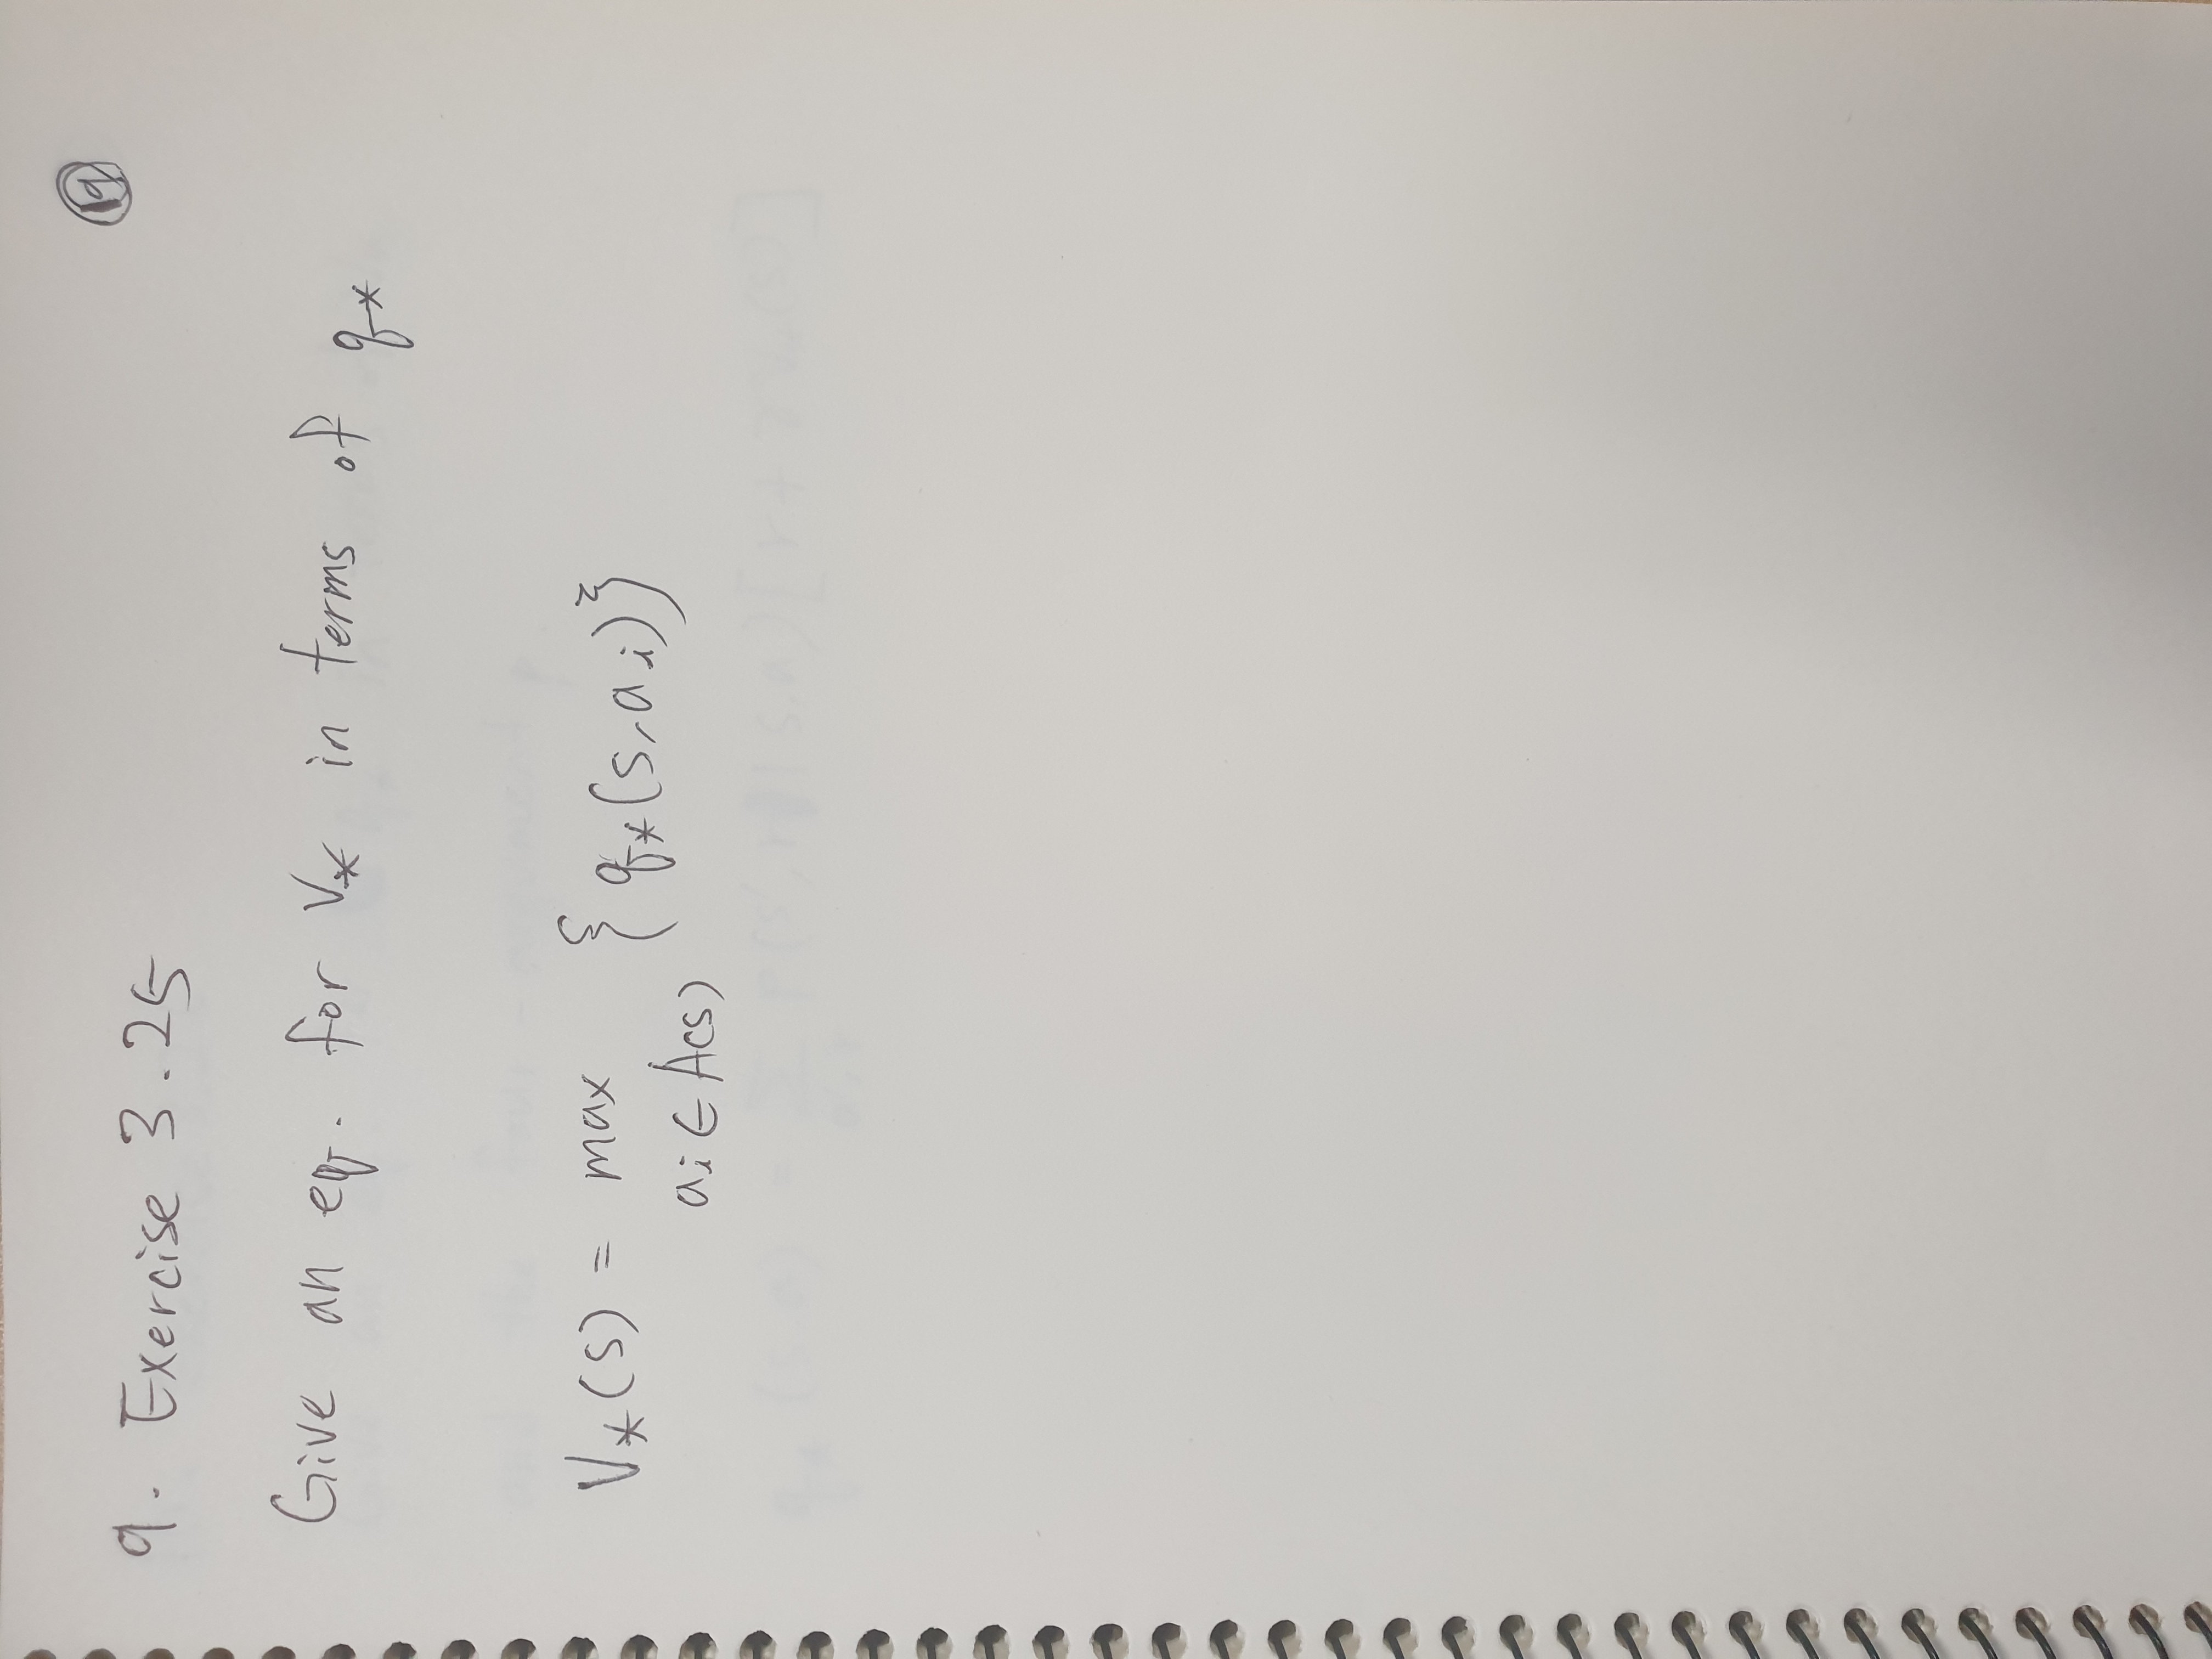 19
9. Exercise 3.25
Give an eq. for V* in terms of q*
V*(s) = max { q*(s, ai)}
ai ∈ A(s)